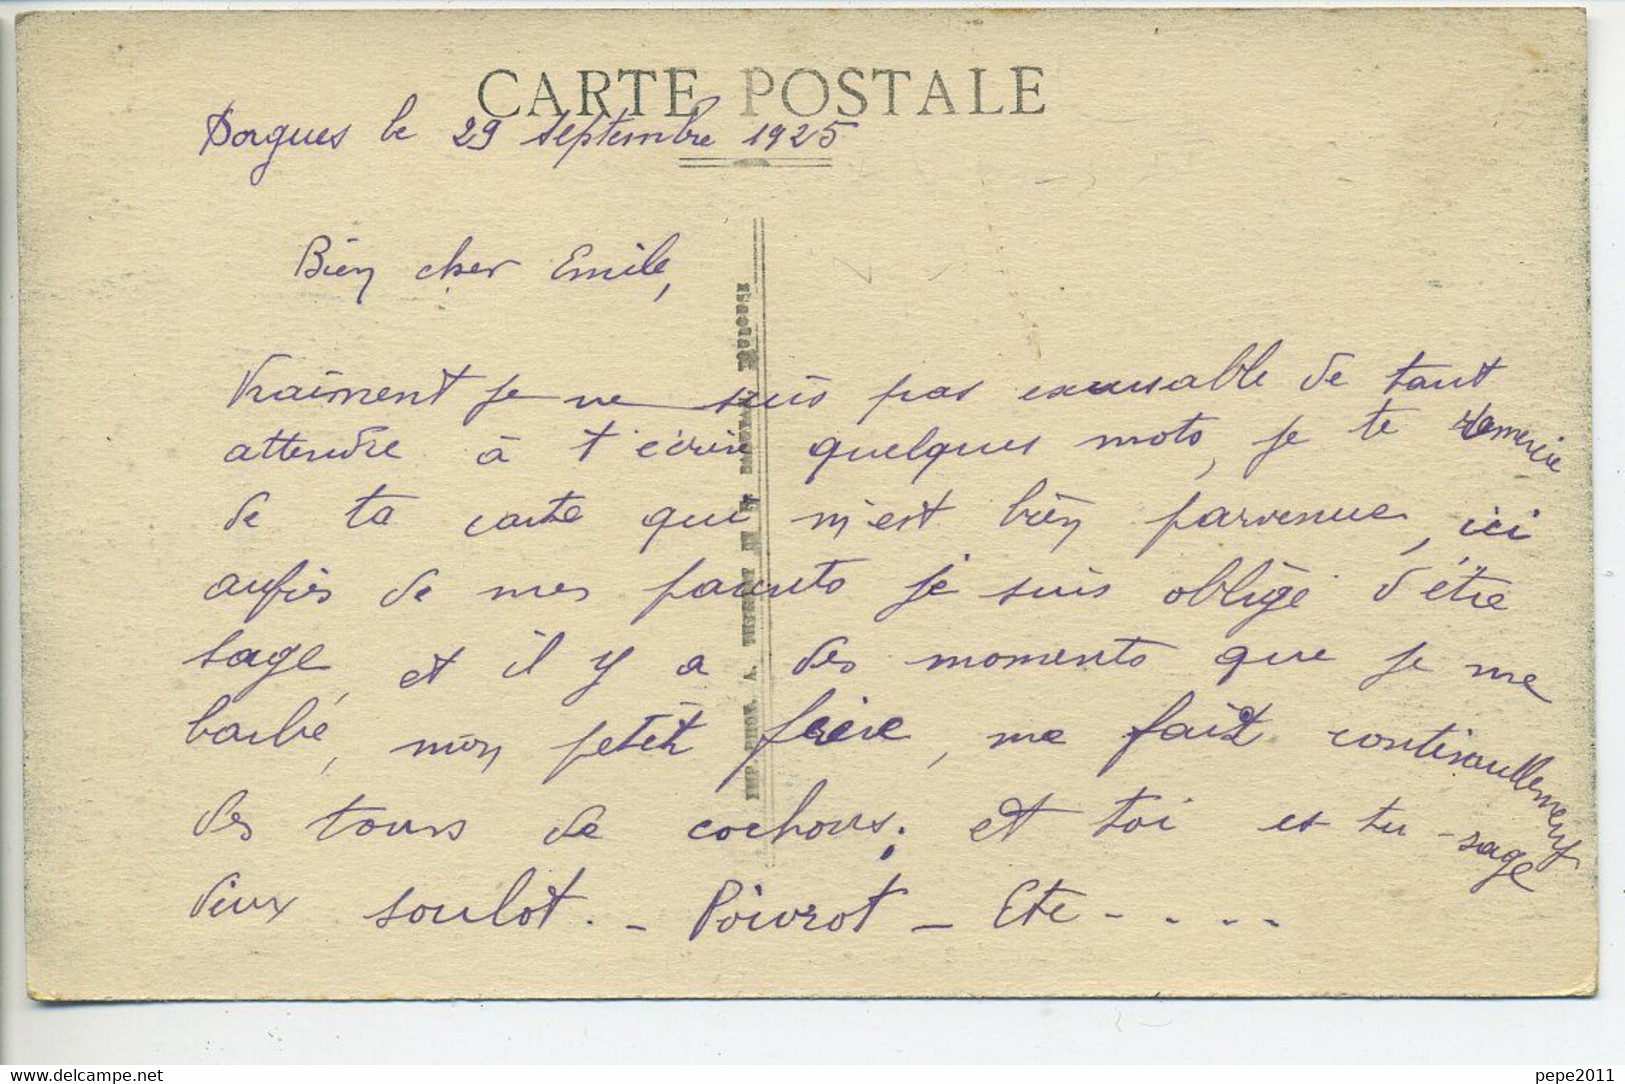 CARTE POSTALE
Dorgues le 29 septembre 1925
Bien cher Emile,
Vraiment je ne suis pas excusable de tant
attendre à t'écrire quelques mots, je te remercie
de ta carte qui m'est bien parvenue, ici
auprès de mes parents je suis obligé d'être
sage, et il y a des moments que je me
barbe, mon petit frère, me fait continuellement
des tours de cochons; et toi es tu sage
vieux soulot. - Poivrot - Etc - . . . .
www.delcampe.net
pepe2011